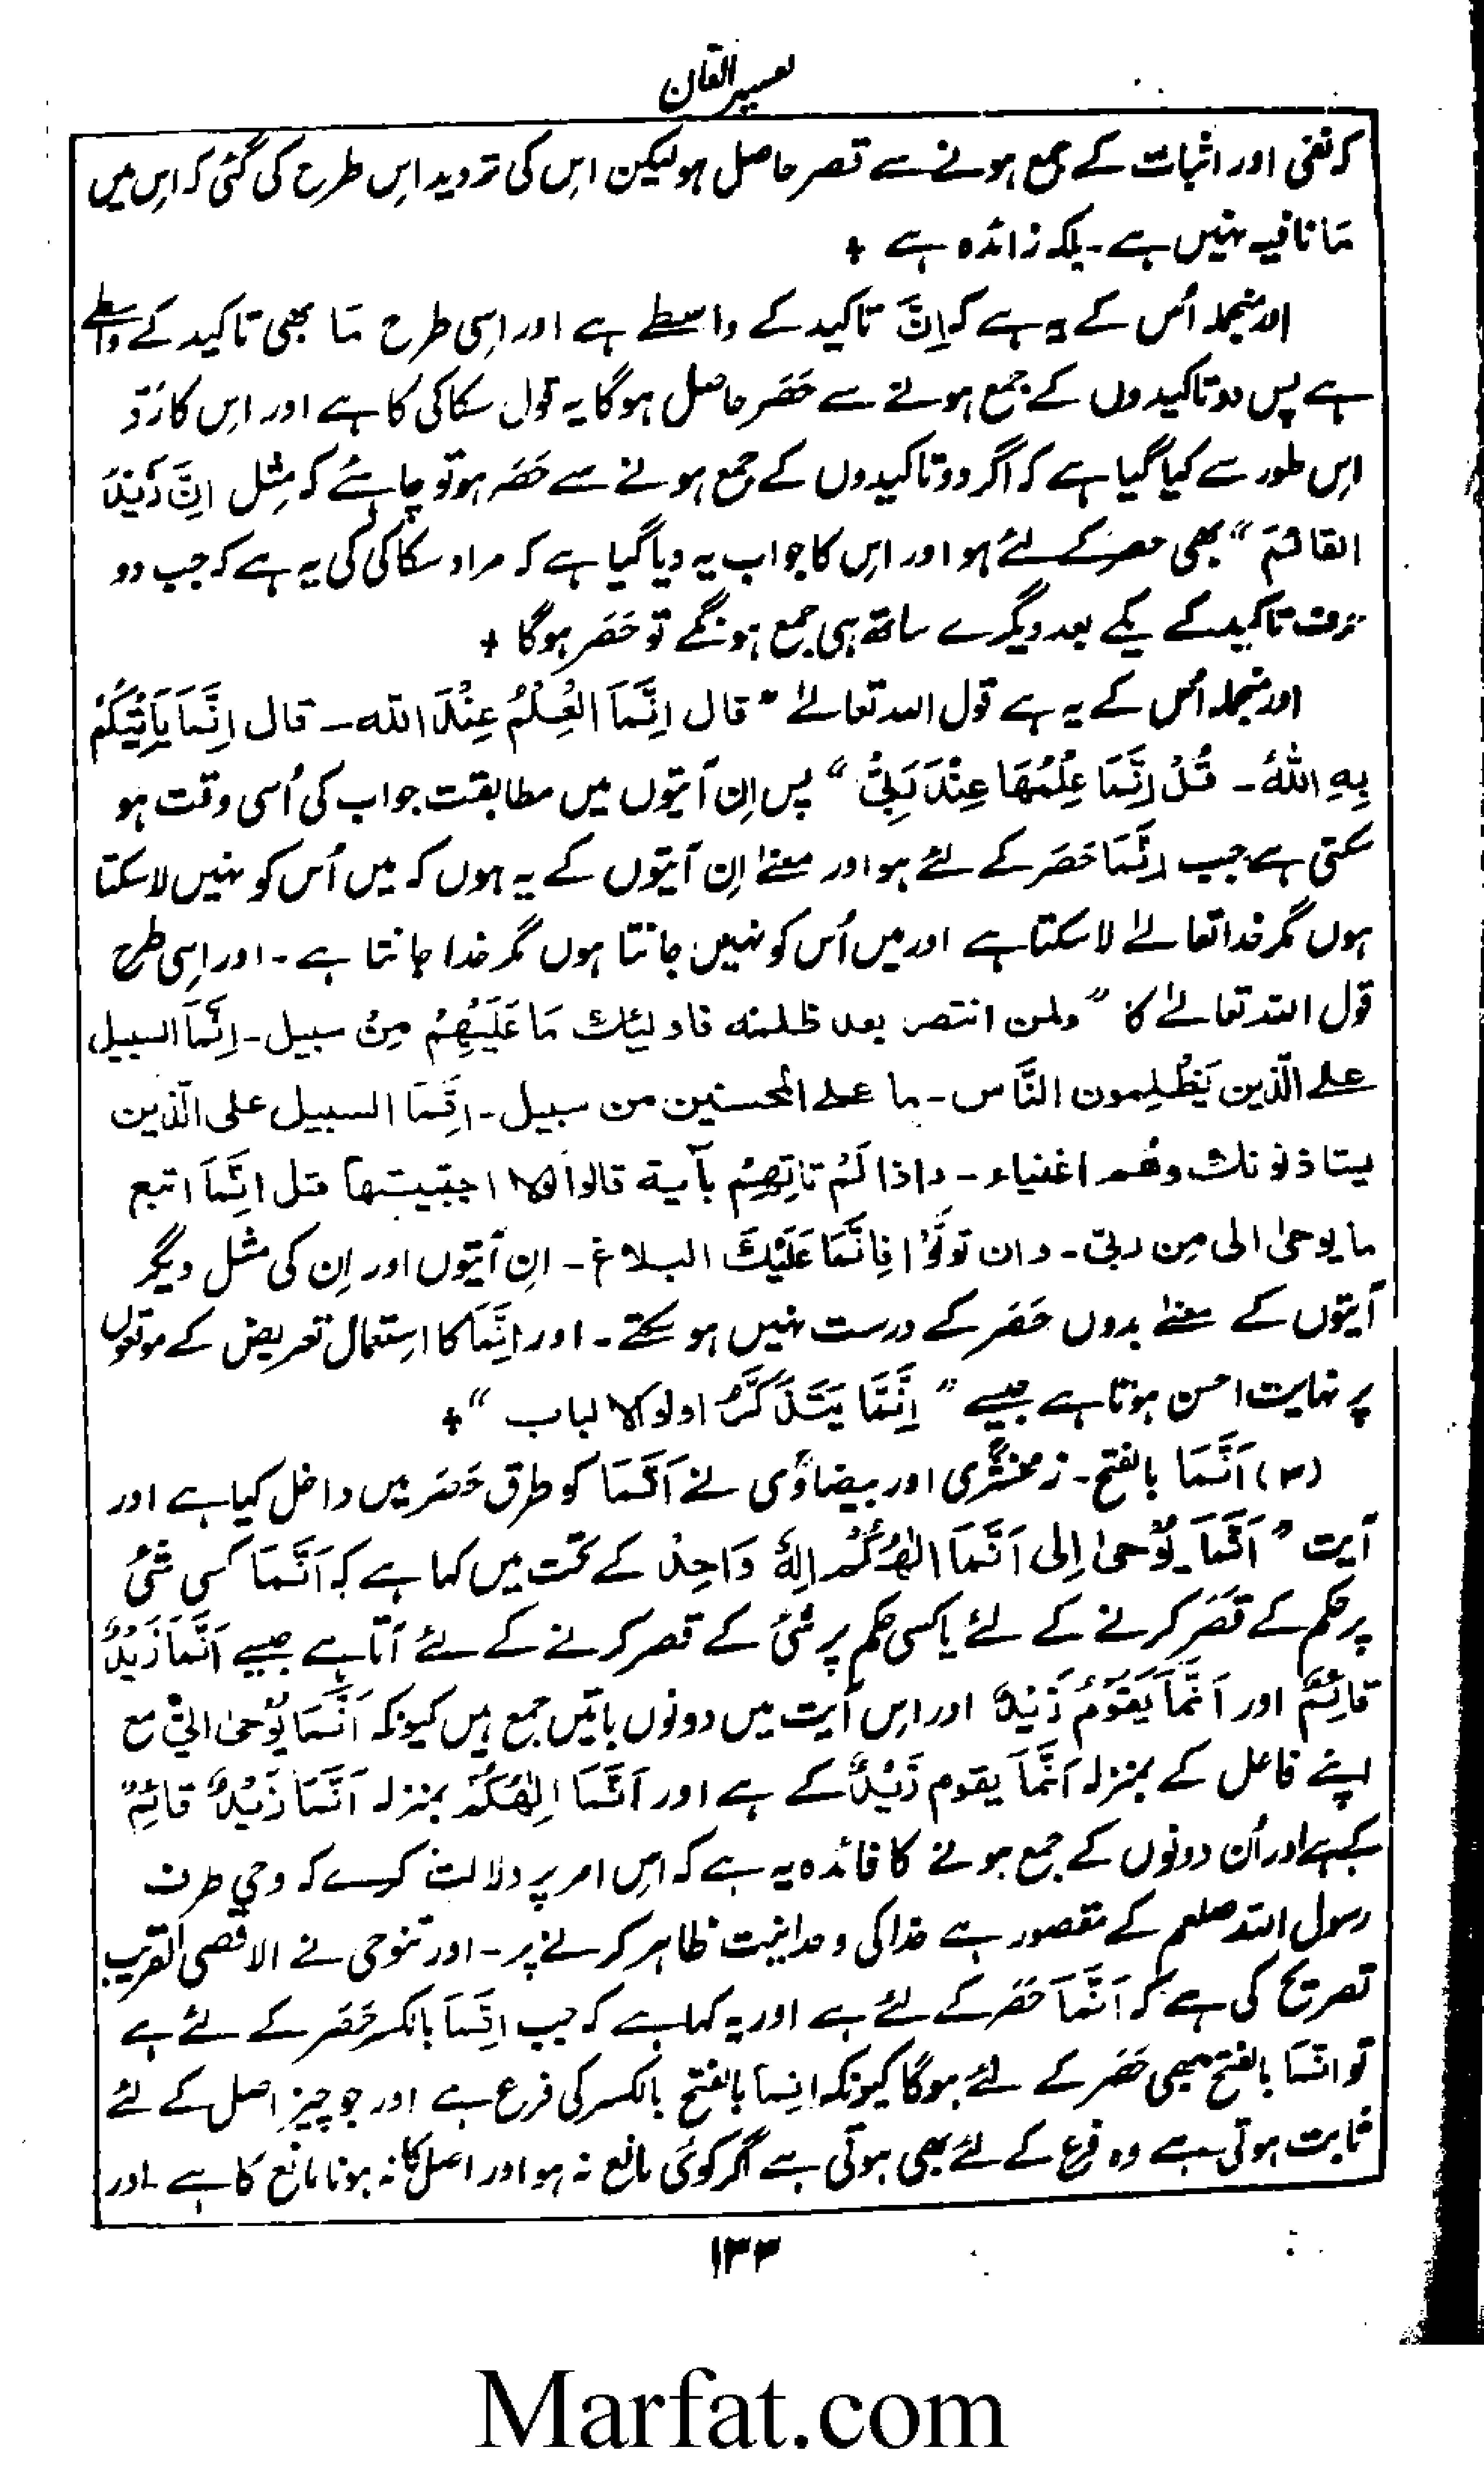 تفسیر القان
کہ نفی اور اثبات کے جمع ہونے سے قصر حاصل ہو لیکن اس کی تردید اِس طرح کی گئی کہ اِس میں
مَا نافیہ نہیں ہے۔ بلکہ زائدہ ہے +
اور منجملہ اُس کے یہ ہے کہ اِنَّ تاکید کے واسطے ہے اور اِسی طرح مَا بھی تاکید کے واسطے
ہے پس دو تاکیدوں کے جمع ہونے سے حَصَر حاصل ہوگا یہ قول سکاکی کا ہے اور اِس کا رَدّ
اِس طور سے کیا گیا ہے کہ اگر دو تاکیدوں کے جمع ہونے سے حَصَر ہو تو چاہئے کہ مِثل اِنَّ زَیْدًا
القائمَ“ بھی حصر کے لئے ہو اور اِس کا جواب یہ دیا گیا ہے کہ مراد سکاکی کی یہ ہے کہ جب دو
حرف تاکید کے یکے بعد دیگرے ساتھ ہی جمع ہونگے تو حَصَر ہوگا +
اور منجملہ اُس کے یہ ہے قول اللہ تعالےٰ ”قال اِنَّمَا الْعِلْمُ عِنْدَ اللہ۔ قال اِنَّمَا یَأْتِیْکُمْ
بِہِ اللہُ۔ قُلْ اِنَّمَا عِلْمُهَا عِنْدَ رَبِّیْ“ پس اِن آیتوں میں مطابقت جواب کی اُسی وقت ہو
سکتی ہے جب اِنَّمَا حَصَر کے لئے ہو اور معنےٰ اِن آیتوں کے یہ ہوں کہ میں اُس کو نہیں لا سکتا
ہوں مگر خدا تعالےٰ لا سکتا ہے اور میں اُس کو نہیں جانتا ہوں مگر خدا جانتا ہے۔ اور اِسی طرح
قول اللہ تعالےٰ کا ”ولمن انتصر بعد ظلمہ فاولئِك مَا عَلَیْهِمْ مِنْ سبیل۔ اِنَّمَا السبیل
علے الّذین یَظْلِمون النَّاس۔ ما علے المحسنین من سبیل۔ اِنَّمَا السبیل علی الّذین
یستاذنونك وهُم اغنیاء۔ واذا لَمْ تاتِهِمْ بآیة قالوا لولا اجتبیتها قل اِنَّمَا اتبع
ما یوحیٰ الی مِن ربّی۔ وان تولَّوْا فاِنَّمَا عَلَیْكَ البلاغ۔ اِن آیتوں اور اِن کی مثل دیگر
آیتوں کے معنےٰ بدوں حَصَر کے درست نہیں ہو سکتے۔ اور اِنَّمَا کا اِستعمال تعریض کے موقعوں
پر نہایت احسن ہوتا ہے جیسے ”اِنَّمَا یَتَذَکَّرُ اولو الالباب“ +
(۳) اَنَّمَا بالفتح۔ زمخشری اور بیضاوی نے اَنَّمَا کو طرق حَصَر میں داخل کیا ہے اور
آیت ”اِنَّمَا یُوْحیٰ اِلی اَنَّمَا اِلٰهُکُمْ اِلٰهٌ وَاحِدٌ کے تحت میں کہا ہے کہ اَنَّمَا کسی شئ
پر حکم کے قَصَر کرنے کے لئے یا کسی حکم پر شئ کے قصر کرنے کے لئے آتا ہے جیسے اَنَّمَا زَیْدٌ
قائِمٌ اور اَنَّمَا یَقُوْمُ زَیْدٌ اور اِس آیت میں دونوں باتیں جمع ہیں کیونکہ اَنَّمَا یُوْحیٰ الیّ مع
اپنے فاعل کے بمنزلہ اَنَّمَا یقوم زَیْدٌ کے ہے اور اَنَّمَا اِلٰهُکُمْ بمنزلہ اَنَّمَا زَیْدٌ قائِمٌ
کے ہے اور اُن دونوں کے جمع ہونے کا فائدہ یہ ہے کہ اِس امر پر دلالت کرے کہ وحی طرف
رسول اللہ صلعم کے مقصور ہے خدا کی وحدانیت ظاہر کرنے پر۔ اور تنوخی نے الاقصی القریب
تصریح کی ہے کہ اَنَّمَا حَصَر کے لئے ہے اور یہ کہا ہے کہ جب اِنَّمَا بالکسر حَصَر کے لئے ہے
تو انّما بالفتح بھی حَصَر کے لئے ہوگا کیونکہ انما بالفتح بالکسر کی فرع ہے اور جو چیز اصل کے لئے
ثابت ہوتی ہے وہ فرع کے لئے بھی ہوتی ہے اگر کوئی مانع نہ ہو اور اصل کا نہ ہونا مانع کا ہے اور
۱۳۳
Marfat.com